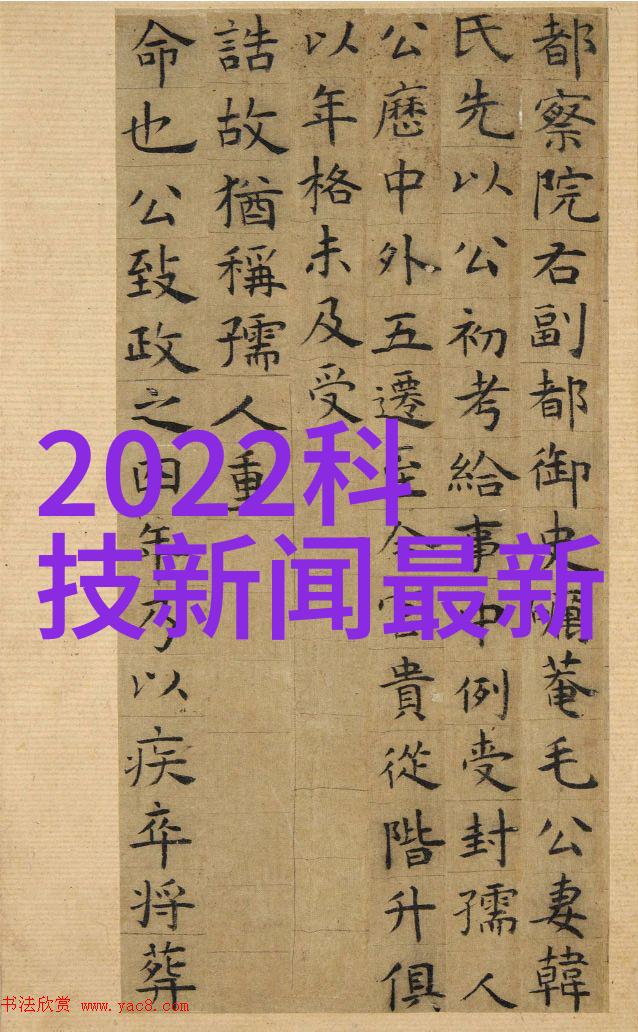 都察院右副都御史菴毛公妻韓
氏先以公初考給事中例受封孺人
公歷中外五遷至今官貴從階升俱
以年格未及受
誥故猶稱孺人重
命也公致政之四年乃以疾卒将葬
2022科
技新闻最新
书法欣赏 www.yac8.com